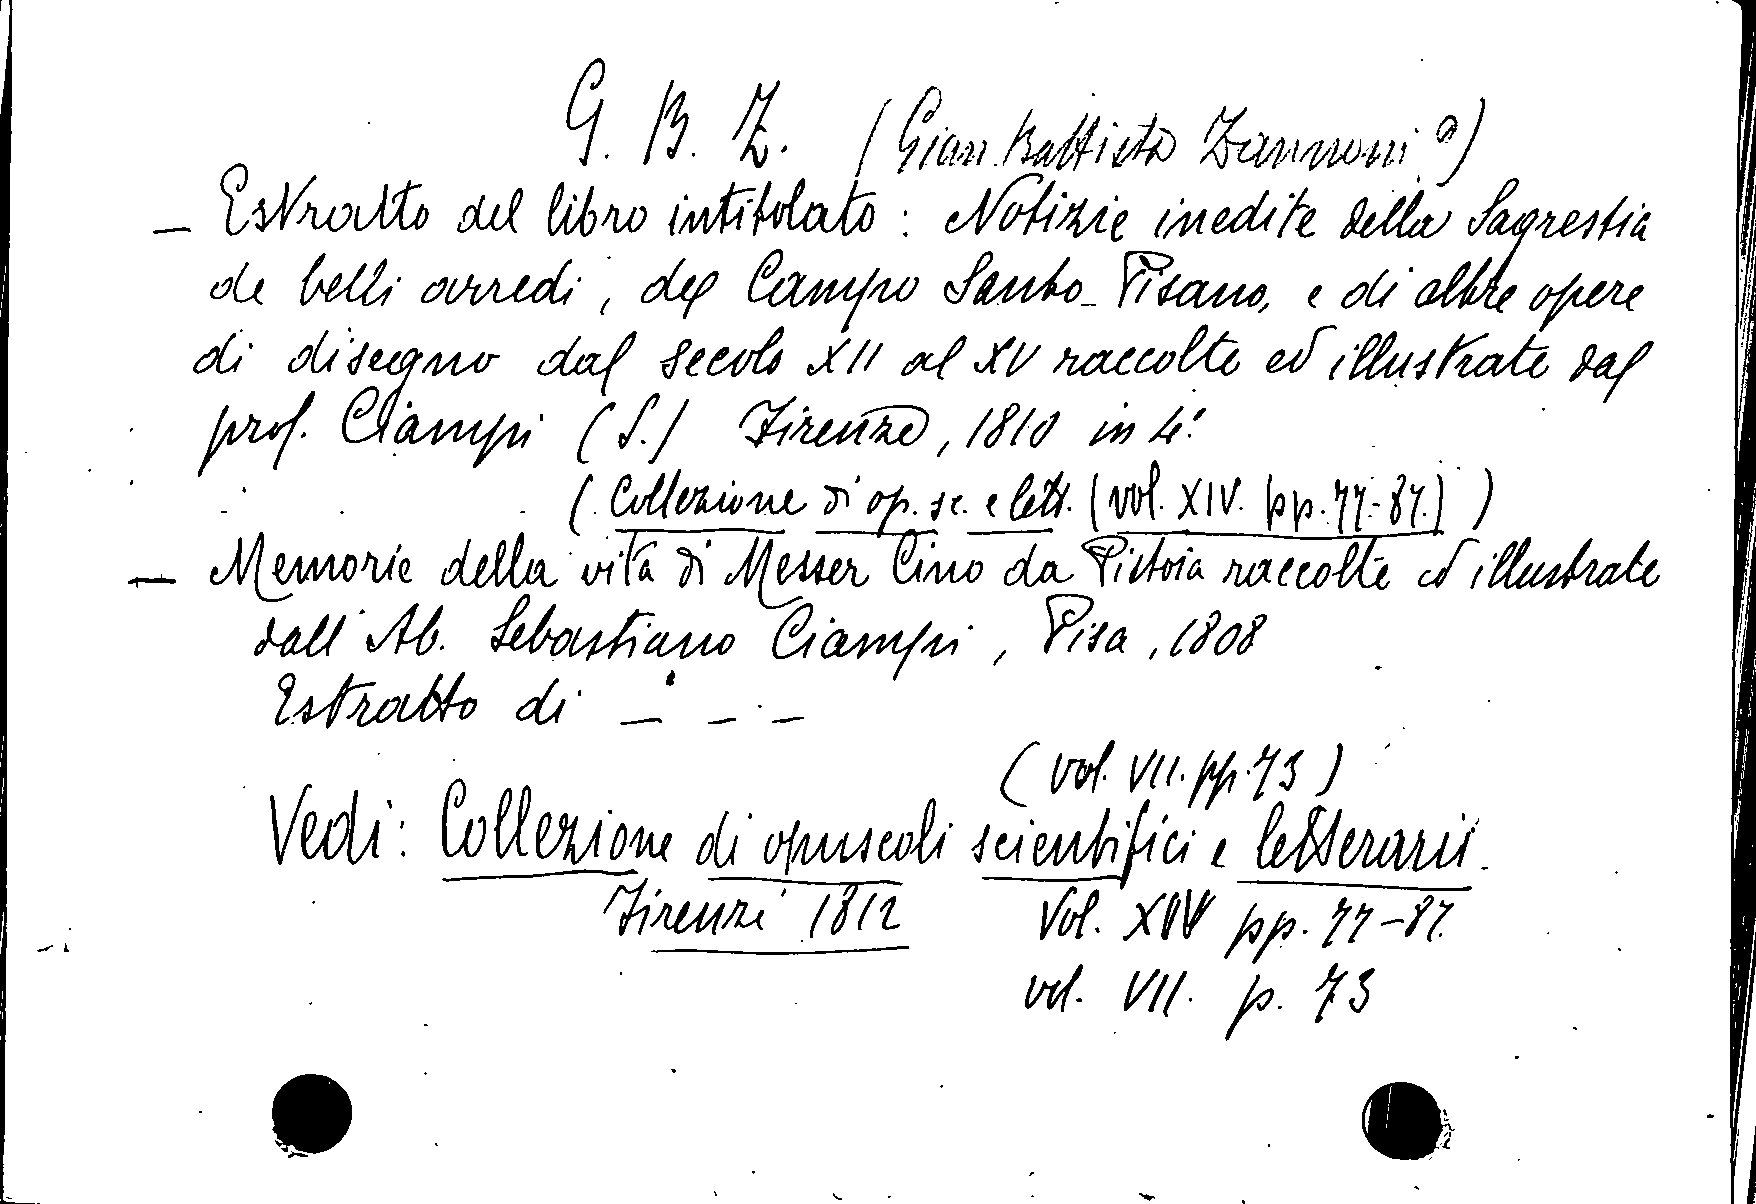 G. B. Z. (Gian Battista Zannoni?)
— Estratto del libro intitolato: Notizie inedite della Sagrestia
de belli arredi, del Campo Santo Pisano, e di altre opere
di disegno dal secolo XII al XV raccolte ed illustrate dal
prof. Ciampi (S.) Firenze, 1810 in 4°.
(Collezione di op. sc. e lett. (vol. XIV. pp. 77-87.))
— Memorie della vita di Messer Cino da Pistoia raccolte ed illustrate
dall' Ab. Sebastiano Ciampi, Pisa, 1808
Estratto di — — —
(vol. VII. pp. 73)
Vedi: Collezione di opuscoli scientifici e letterarii.
Firenze 1812 Vol. XIV pp. 77-87.
vol. VII. p. 73